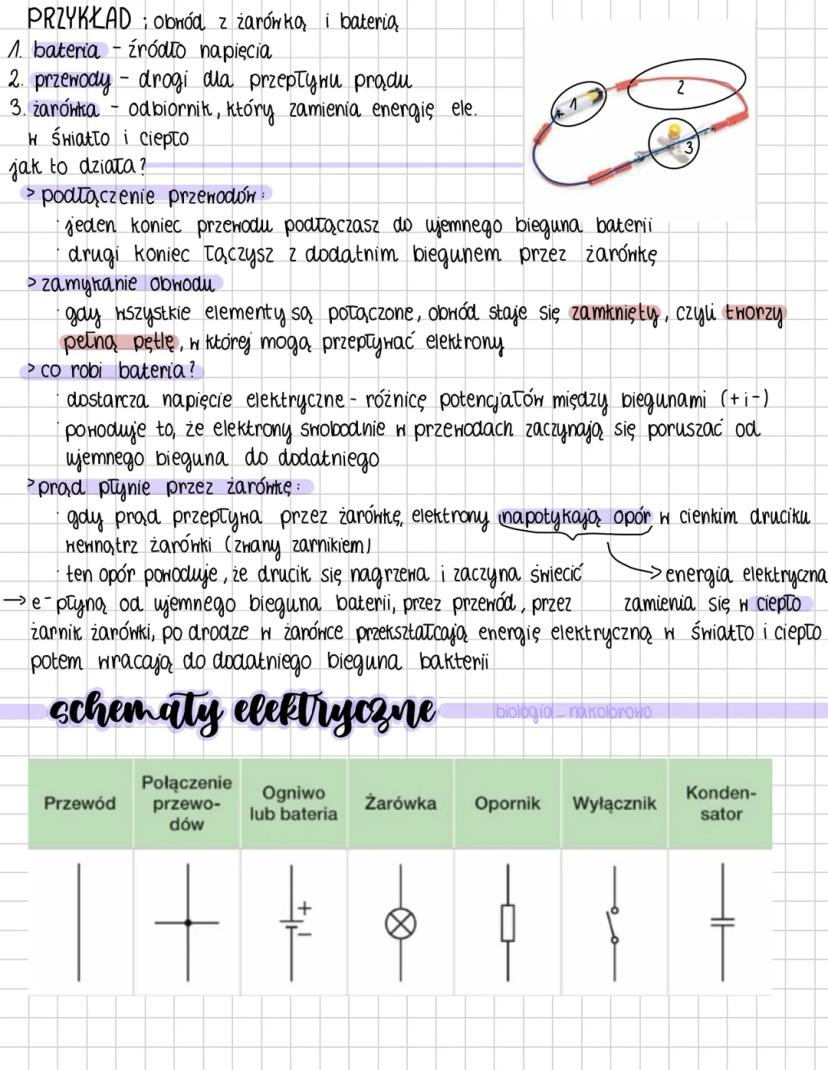 PRZYKŁAD ; obwód z żarówką i baterią
1. bateria - źródło napięcia
2. przewody - drogi dla przepływu prądu
3. żarówka - odbiornik, który zamienia energię ele.
w światło i ciepło
1
2
3
jak to działa?
> podłączenie przewodów:
· jeden koniec przewodu podłączasz do ujemnego bieguna baterii
· drugi koniec łączysz z dodatnim biegunem przez żarówkę
> zamykanie obwodu
· gdy wszystkie elementy są połączone, obwód staje się zamknięty, czyli tworzy
pełną pętlę, w której mogą przepływać elektrony
> co robi bateria?
· dostarcza napięcie elektryczne - różnicę potencjałów między biegunami (+ i -)
· powoduje to, że elektrony swobodnie w przewodach zaczynają się poruszać od
ujemnego bieguna do dodatniego
> prąd płynie przez żarówkę:
· gdy prąd przepływa przez żarówkę, elektrony napotykają opór w cienkim druciku
wewnątrz żarówki (zwany żarnikiem)
· ten opór powoduje, że drucik się nagrzewa i zaczyna świecić
→ energia elektryczna
zamienia się w ciepło
→ e⁻ płyną od ujemnego bieguna baterii, przez przewód, przez
żarnik żarówki, po drodze w żarówce przekształcają energię elektryczną w światło i ciepło
potem wracają do dodatniego bieguna bakterii
schematy elektryczne
biologia_nakolorowo
Przewód
Połączenie
przewo-
dów
Ogniwo
lub bateria
Żarówka
Opornik
Wyłącznik
Konden-
sator
+
−